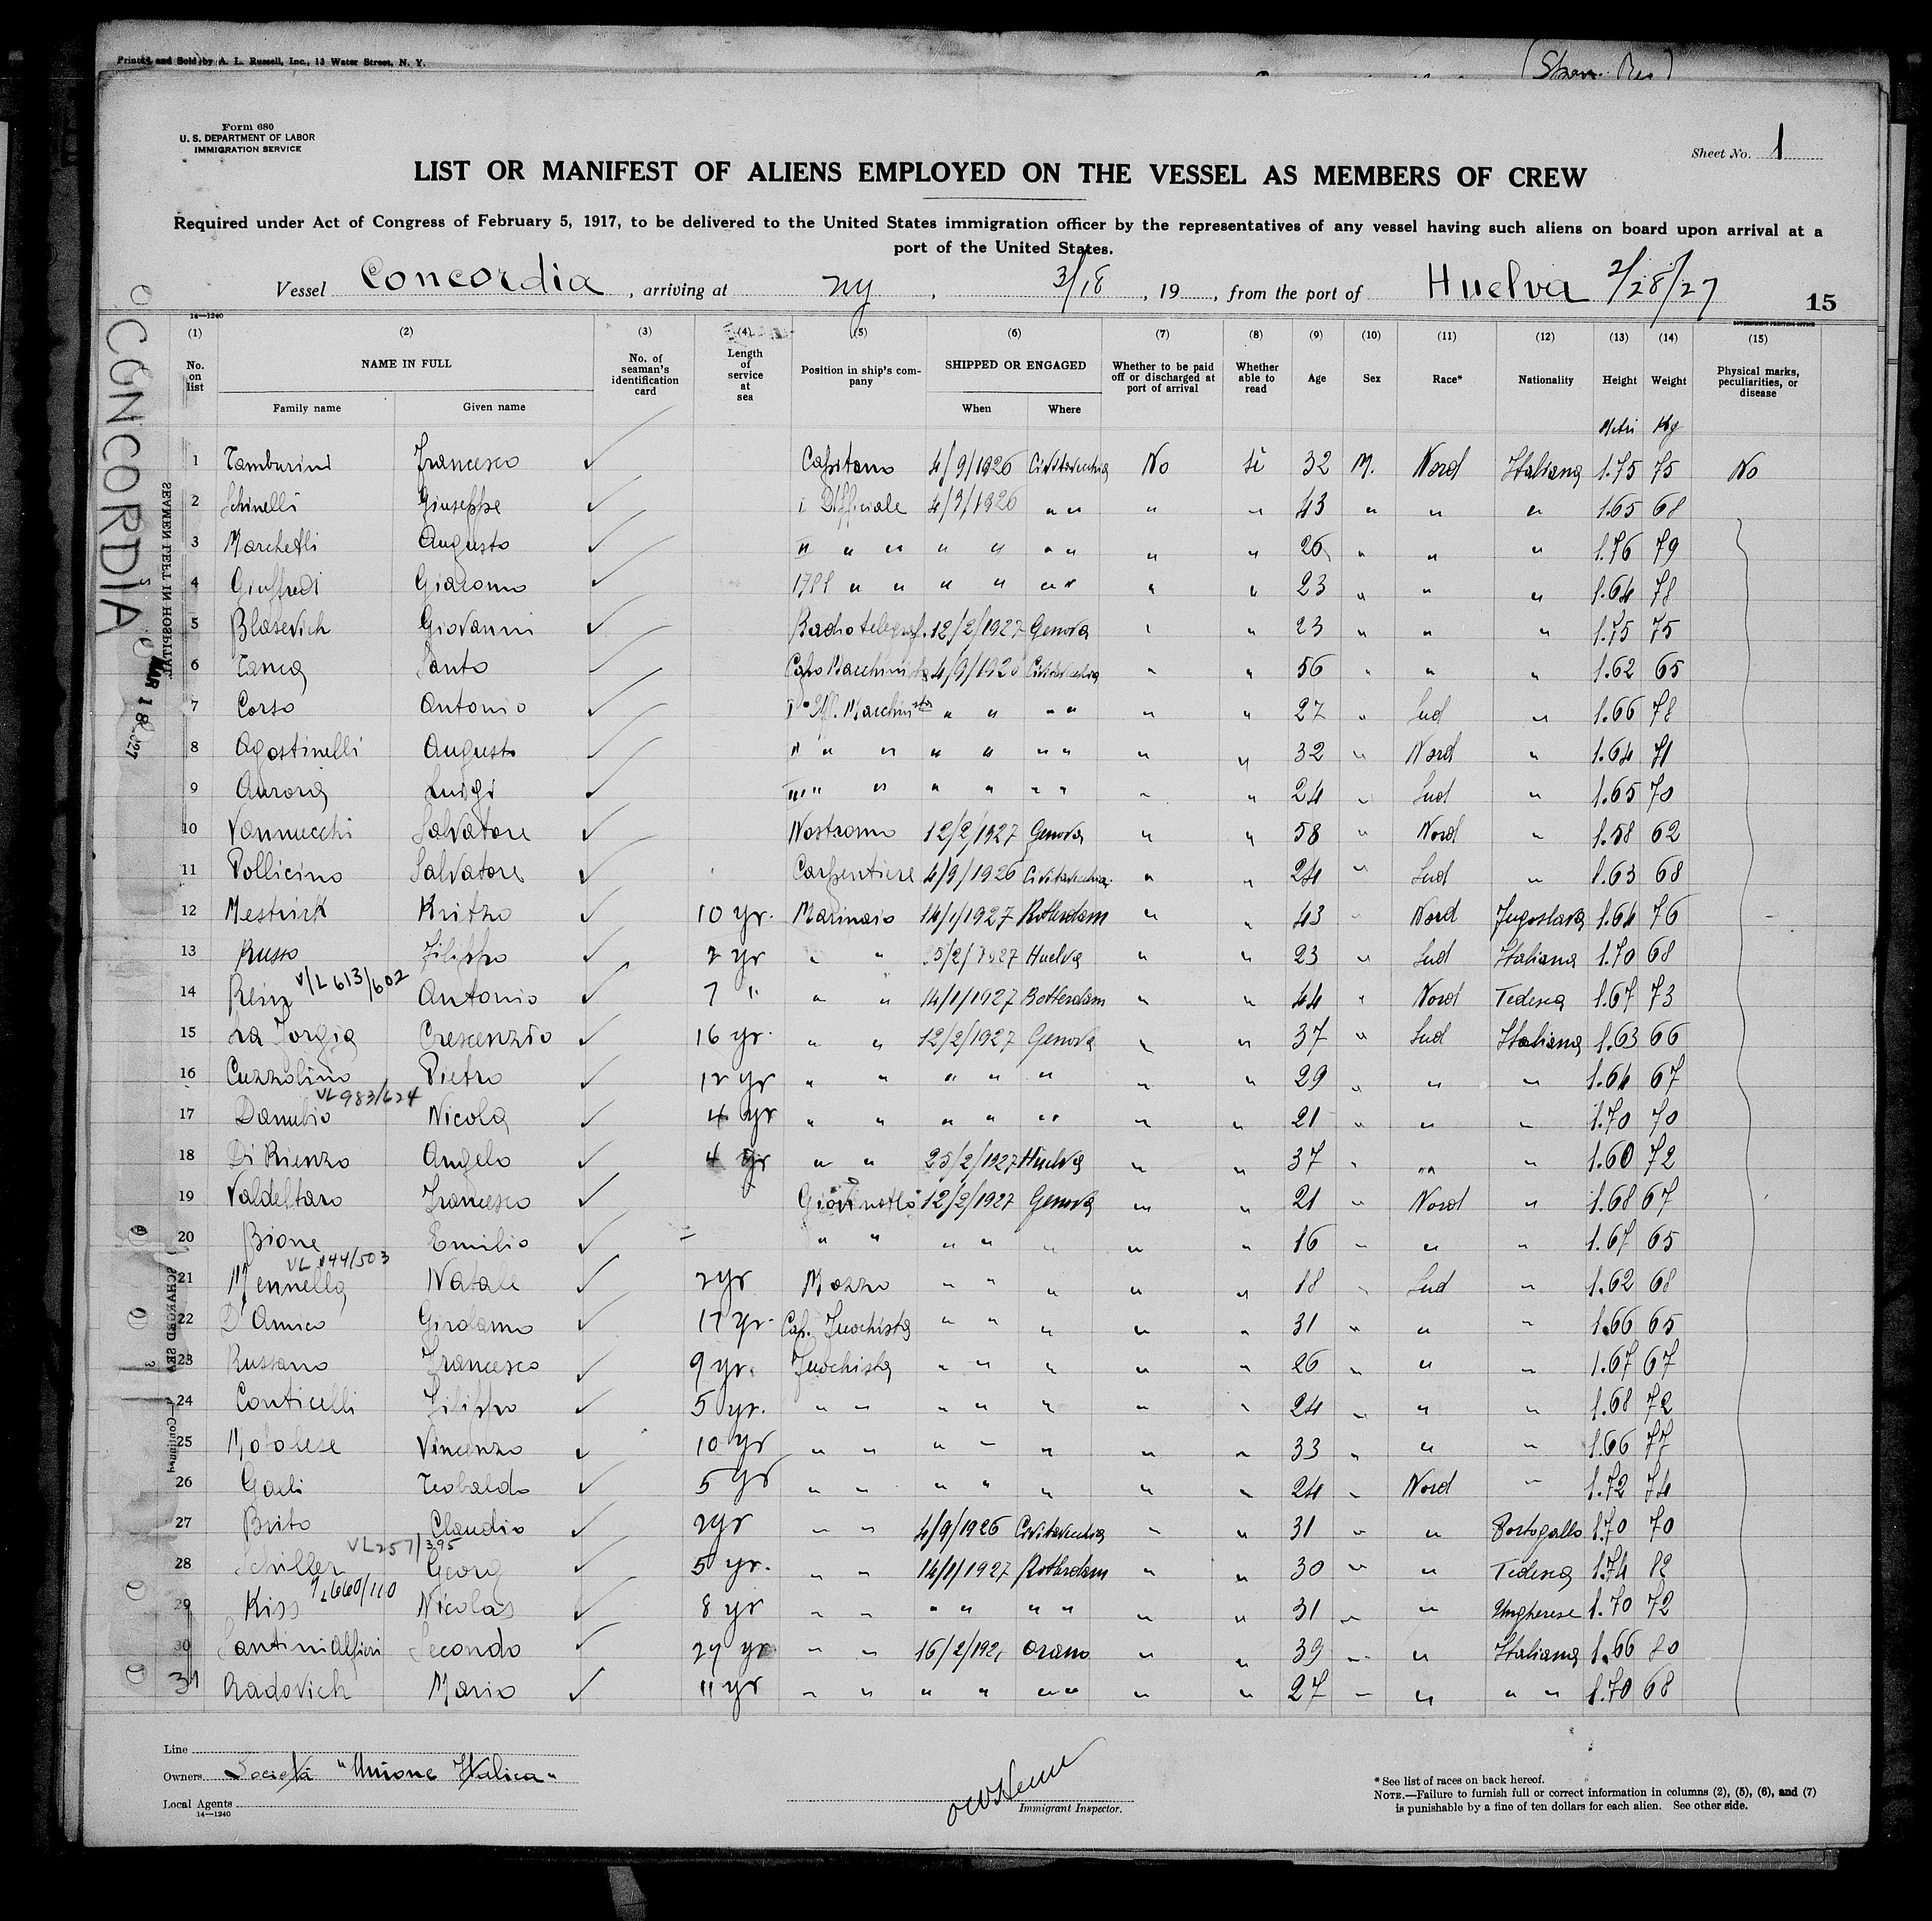 Printed and Sold by A. L. Russell, Inc., 13 Water Street, N. Y.
Form 680
U. S. DEPARTMENT OF LABOR
IMMIGRATION SERVICE
Sheet No. 1
LIST OR MANIFEST OF ALIENS EMPLOYED ON THE VESSEL AS MEMBERS OF CREW
Required under Act of Congress of February 5, 1917, to be delivered to the United States immigration officer by the representatives of any vessel having such aliens on board upon arrival at a
port of the United States.
Vessel Concordia, arriving at ny, 3/18, 19, from the port of Huelva 2/28/27
15
14—1240
GOVERNMENT PRINTING OFFICE
CONCORDIA
SEAMEN LEFT IN HOSPITAL
MAR 18 1927
(1) (2) (3) (4) (5) (6) (7) (8) (9) (10) (11) (12) (13) (14) (15)
No. on list NAME IN FULL No. of seaman's identification card Length of service at sea Position in ship's company SHIPPED OR ENGAGED Whether to be paid off or discharged at port of arrival Whether able to read Age Sex Race* Nationality Height Weight Physical marks, peculiarities, or disease
Family name Given name When Where
Metri Kg
1 Tamburini Francesco ✓ Capitano 4/9/1926 Civitavecchia No si 32 M. Nord Italiana 1.75 75 No
2 Schinelli Giuseppe ✓ I Ufficiale 4/9/1926 " " " " 43 " " " 1.65 68
3 Marchetti Augusto ✓ II " " " " " " " " 26 " " " 1.76 79
4 Giuffredi Giacomo ✓ " " " " " " " " 23 " " " 1.64 78
5 Blasevich Giovanni ✓ Radiotelegraf. 12/2/1927 Genova " " 23 " " " 1.75 75
6 Tanca Santo ✓ Capo Macchinista 4/9/1926 Civitavecchia " " 56 " " " 1.62 65
7 Corso Antonio ✓ I° Uff. Macchinista " " " " " " 27 " Sud " 1.66 78
8 Agostinelli Augusto ✓ II " " " " " " " " 32 " Nord " 1.64 71
9 Aurora Luigi ✓ III " " " " " " " " 24 " Sud " 1.65 70
10 Vannucchi Salvatore ✓ Nostromo 12/2/1927 Genova " " 58 " Nord " 1.58 62
11 Pollicino Salvatore ✓ Carpentiere 4/9/1926 Civitavecchia " " 24 " Sud " 1.63 68
12 Kritzo ✓ 10 yr. Marinaio 14/1/1927 Rotterdam " " 43 " Nord Jugoslava 1.64 76
13 Russo Filippo ✓ 2 yr " " 25/2/1927 Huelva " " 23 " Sud Italiana 1.70 68
V/L 613/602
14 Reinz Antonio ✓ 7 " " " 14/1/1927 Rotterdam " " 44 " Nord Tedesca 1.67 73
15 La Forgia Crescenzio ✓ 16 yr. " " 12/2/1927 Genova " " 37 " Sud Italiana 1.63 66
16 Cuzzolino Pietro ✓ 12 yr " " " " " " " 29 " " " 1.64 67
VL 983/624
17 Danubio Nicola ✓ 4 yr " " " " " " " 21 " " " 1.70 70
18 Di Rienzo Angelo ✓ 4 yr " " 25/2/1927 Huelva " " 37 " " " 1.60 72
19 Valdettaro Francesco ✓ Giovinotto 12/2/1927 Genova " " 21 " Nord " 1.68 67
20 Bione Emilio ✓ " " " " " " " 16 " " " 1.67 65
VL 144/503
21 Mennella Natale ✓ 2yr Mozzo " " " " " 18 " Sud " 1.62 68
22 D'Amico Girolamo ✓ 17 yr. Cap. Fuochista " " " " " 31 " " " 1.66 65
23 Russano Francesco ✓ 9 yr. Fuochista " " " " " 26 " " " 1.67 67
24 Conticelli Filippo ✓ 5 yr. " " " " " " " 24 " " " 1.68 72
25 Vincenzo ✓ 10 yr " " " " " " " 33 " " " 1.66 77
26 Gaeli Teobaldo ✓ 5 yr " " " " " " " 24 " Nord " 1.72 74
27 Brito Claudio ✓ 2yr " " 4/9/1926 Civitavecchia " " 31 " " Portogallo 1.70 70
VL 257/395
28 Schiller Georg ✓ 5 yr. " " 14/1/1927 Rotterdam " " 30 " " Tedesca 1.74 82
L660/110
29 Kiss Nicolas ✓ 8 yr " " " " " " " " 31 " " Ungherese 1.70 72
30 Santini Alfieri Secondo ✓ 27 yr " " 16/2/192 Orano " " 39 " " Italiana 1.66 80
31 Radovich Mario ✓ 11 yr " " " " " " " " 27 " " " " 1.70 68
Line
Owners Società "Unione Italica"
Local Agents
14—1240
Immigrant Inspector.
* See list of races on back hereof.
NOTE.—Failure to furnish full or correct information in columns (2), (5), (6), and (7)
is punishable by a fine of ten dollars for each alien. See other side.